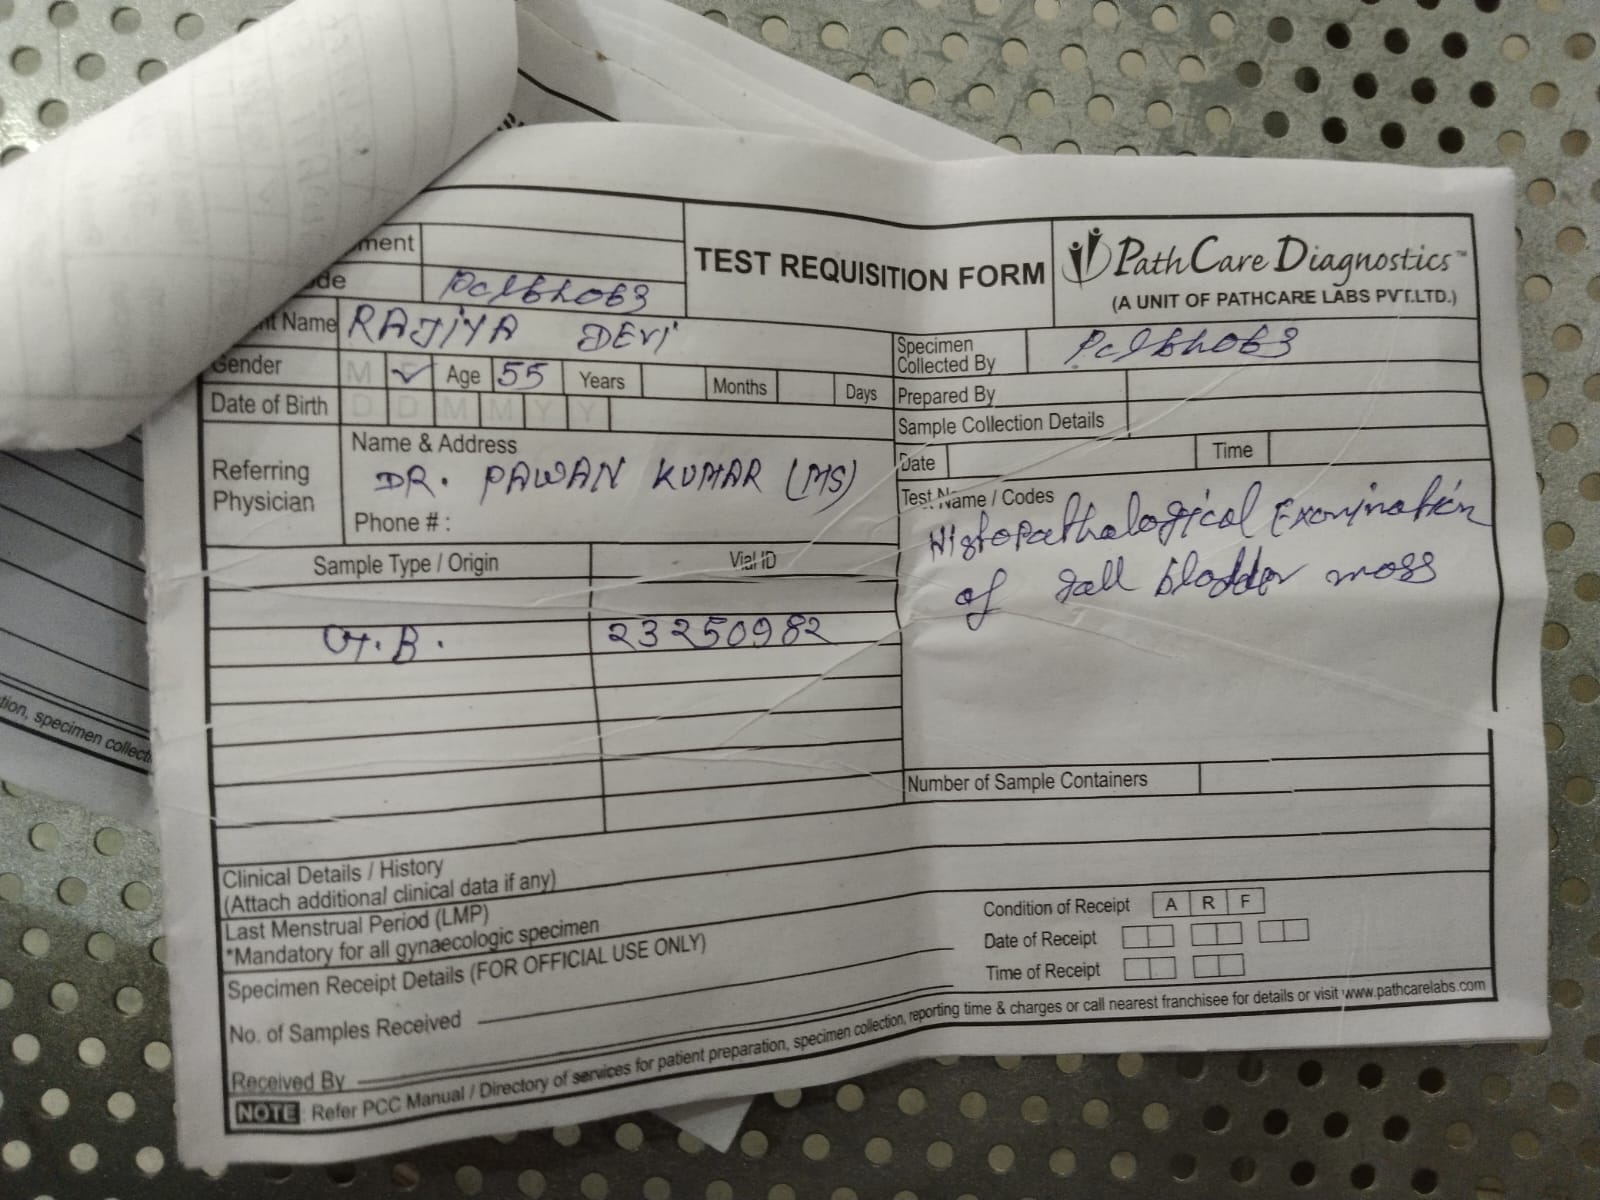 ment
TEST REQUISITION FORM
PathCare Diagnostics™
(A UNIT OF PATHCARE LABS PVT.LTD.)
de
nt Name RAJiYA DEVi
Gender M ✓ Age 55 Years Months Days
Date of Birth D D M M Y Y
Referring Physician
Name & Address
DR. PAWAN KUMAR (MS)
Phone # :
Sample Type / Origin Vial ID
G.B. 23250982
Specimen Collected By
Prepared By
Sample Collection Details
Date Time
Test Name / Codes
Histopathological Examination
of Gall bladder mass
Number of Sample Containers
Clinical Details / History
(Attach additional clinical data if any)
Last Menstrual Period (LMP)
*Mandatory for all gynaecologic specimen
Specimen Receipt Details (FOR OFFICIAL USE ONLY)
No. of Samples Received
Received By
Condition of Receipt A R F
Date of Receipt
Time of Receipt
NOTE Refer PCC Manual / Directory of services for patient preparation, specimen collection, reporting time & charges or call nearest franchisee for details or visit www.pathcarelabs.com
tion, specimen collecti